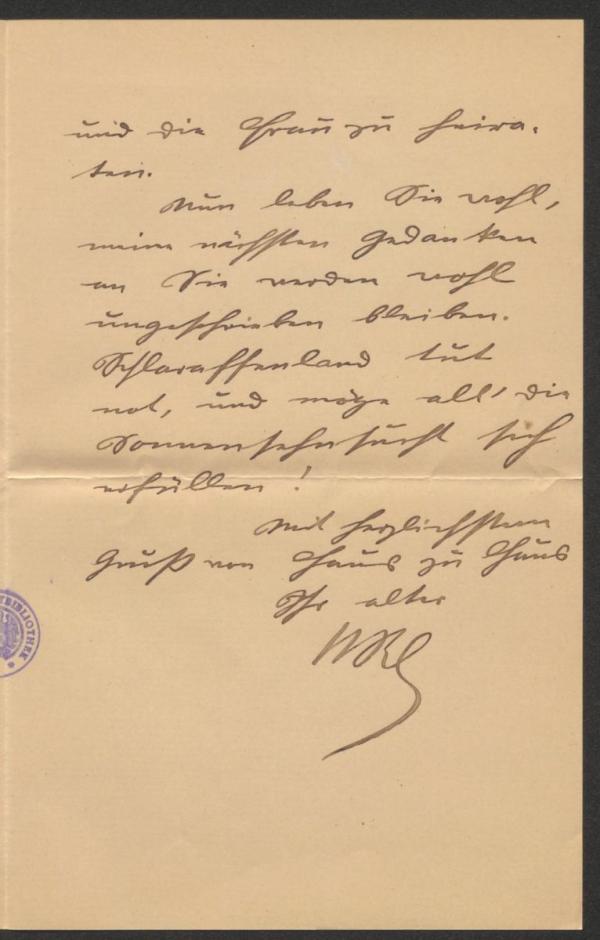 und die Frau zu heira-
ten.
Nun leben Sie wohl,
meine nächsten Gedanken
an Sie werden wohl
ungeschrieben bleiben.
Schlaraffenland tut
not, und möge all' die
Sonnensehnsucht sich
erfüllen!
Mit herzlichstem
Gruß von Haus zu Haus
Ihr alter
TBIBLIOTHEK